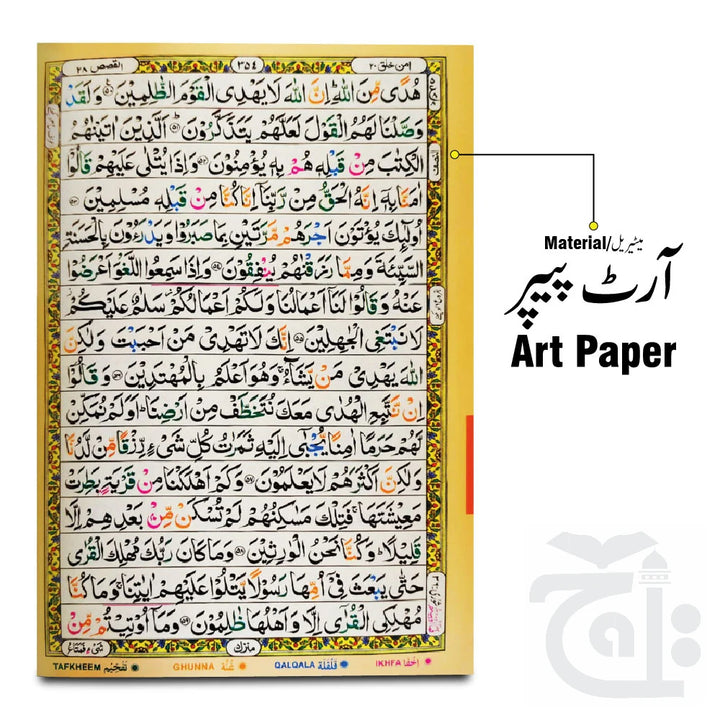 امن خلق ۲۰
۳۵۴
القصص ۲۸
هُدًى مِّنَ اللّٰهِ ؕ اِنَّ اللّٰهَ لَا یَهْدِی الْقَوْمَ الظّٰلِمِیْنَ ۝۵۰ وَ لَقَدْ
وَصَّلْنَا لَهُمُ الْقَوْلَ لَعَلَّهُمْ یَتَذَكَّرُوْنَ ۝۵۱ اَلَّذِیْنَ اٰتَیْنٰهُمُ
الْكِتٰبَ مِنْ قَبْلِهٖ هُمْ بِهٖ یُؤْمِنُوْنَ ۝۵۲ وَ اِذَا یُتْلٰی عَلَیْهِمْ قَالُوْۤا
اٰمَنَّا بِهٖۤ اِنَّهُ الْحَقُّ مِنْ رَّبِّنَاۤ اِنَّا كُنَّا مِنْ قَبْلِهٖ مُسْلِمِیْنَ ۝۵۳
اُولٰٓىِٕكَ یُؤْتَوْنَ اَجْرَهُمْ مَّرَّتَیْنِ بِمَا صَبَرُوْا وَ یَدْرَءُوْنَ بِالْحَسَنَةِ
السَّیِّئَةَ وَ مِمَّا رَزَقْنٰهُمْ یُنْفِقُوْنَ ۝۵۴ وَ اِذَا سَمِعُوا اللَّغْوَ اَعْرَضُوْا
عَنْهُ وَ قَالُوْا لَنَاۤ اَعْمَالُنَا وَ لَكُمْ اَعْمَالُكُمْ ؗ سَلٰمٌ عَلَیْكُمْ ؗ
لَا نَبْتَغِی الْجٰهِلِیْنَ ۝۵۵ اِنَّكَ لَا تَهْدِیْ مَنْ اَحْبَبْتَ وَ لٰكِنَّ
اللّٰهَ یَهْدِیْ مَنْ یَّشَآءُ ۚ وَ هُوَ اَعْلَمُ بِالْمُهْتَدِیْنَ ۝۵۶ وَ قَالُوْۤا
اِنْ نَّتَّبِعِ الْهُدٰی مَعَكَ نُتَخَطَّفْ مِنْ اَرْضِنَا ؕ اَوَ لَمْ نُمَكِّنْ
لَّهُمْ حَرَمًا اٰمِنًا یُّجْبٰۤی اِلَیْهِ ثَمَرٰتُ كُلِّ شَیْءٍ رِّزْقًا مِّنْ لَّدُنَّا
وَ لٰكِنَّ اَكْثَرَهُمْ لَا یَعْلَمُوْنَ ۝۵۷ وَ كَمْ اَهْلَكْنَا مِنْ قَرْیَةٍۭ بَطِرَتْ
مَعِیْشَتَهَا ۚ فَتِلْكَ مَسٰكِنُهُمْ لَمْ تُسْكَنْ مِّنْۢ بَعْدِهِمْ اِلَّا
قَلِیْلًا ؕ وَ كُنَّا نَحْنُ الْوٰرِثِیْنَ ۝۵۸ وَ مَا كَانَ رَبُّكَ مُهْلِكَ الْقُرٰی
حَتّٰی یَبْعَثَ فِیْۤ اُمِّهَا رَسُوْلًا یَّتْلُوْا عَلَیْهِمْ اٰیٰتِنَا ۚ وَ مَا كُنَّا
مُهْلِكِی الْقُرٰۤی اِلَّا وَ اَهْلُهَا ظٰلِمُوْنَ ۝۵۹ وَ مَاۤ اُوْتِیْتُمْ مِّنْ
شَیْءٍ فَمَتَاعُ
منزل
TAFKHEEM تَفْخِیْم GHUNNA غُنَّة QALQALA قَلْقَلَة IKHFA اِخْفَا
Material/میٹیریل
آرٹ پیپر
Art Paper